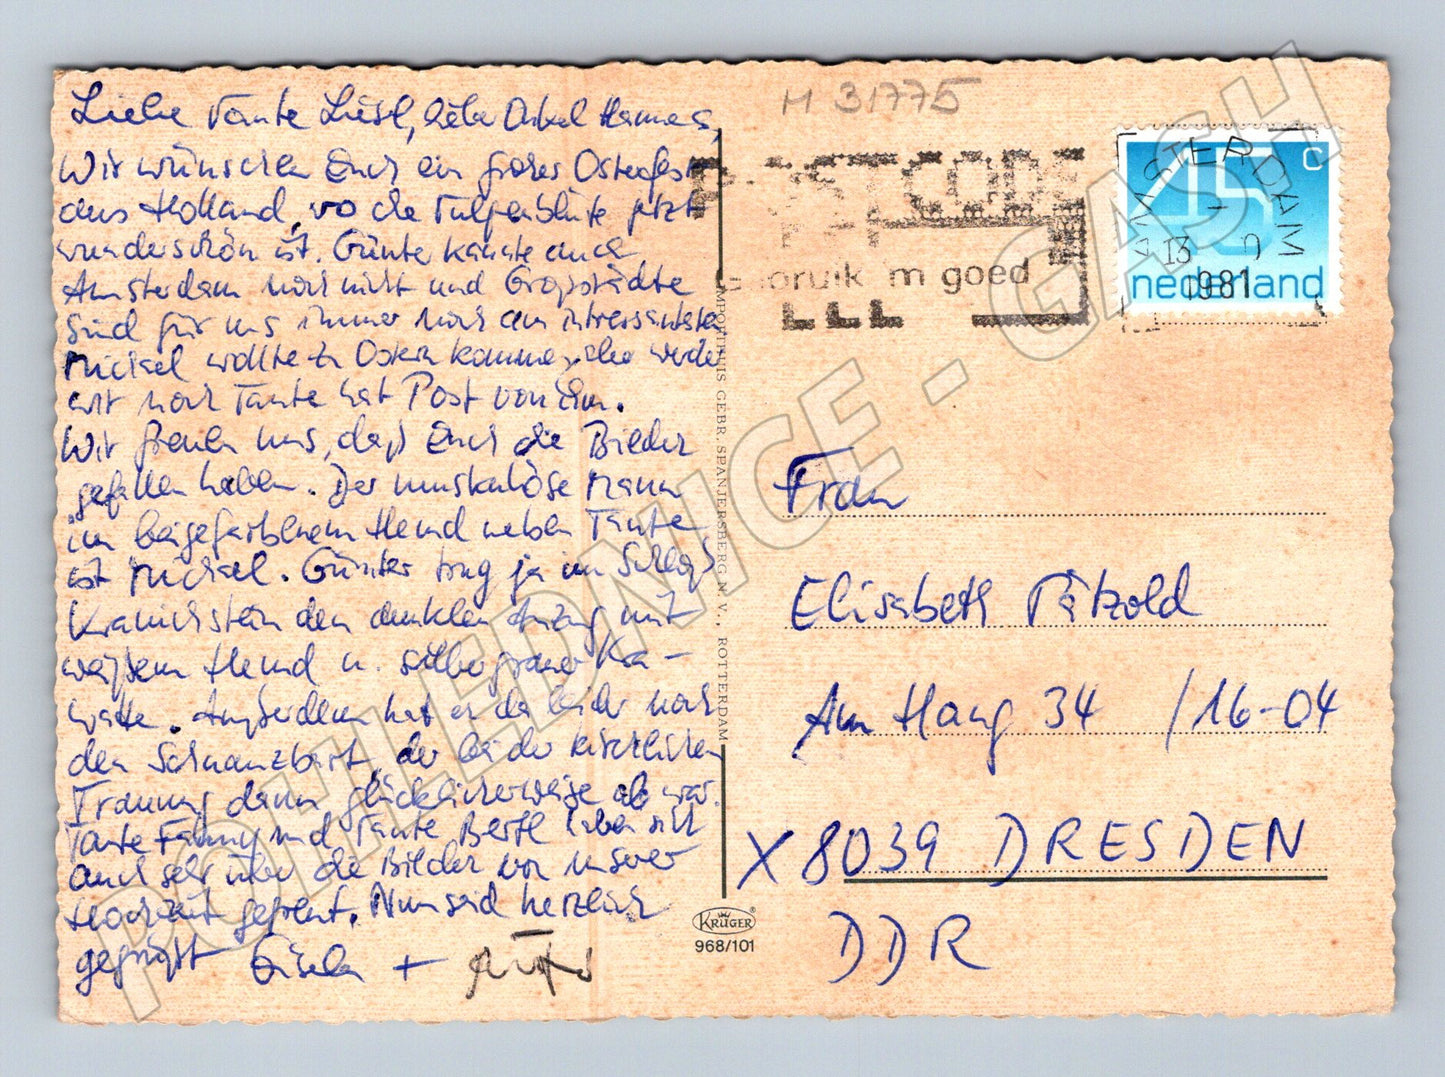 Liebe Tante Liesl, liebe Onkel Hannes,
Wir wünschen Euch ein frohes Osterfest
aus Holland, wo die Tulpenblüte jetzt
wunderschön ist. Günter kannte auch
Amsterdam noch nicht und Großstädte
sind für uns immer noch am intressantesten
Michael wollte zu Ostern kommen, aber weder
wir noch Tante hat Post von ihm.
Wir freuen uns, daß Euch die Bilder
gefallen haben. Der muskulöse Mann
im beigefarbenem Hemd neben Tante
ist Michael. Günter trug ja im Schloß
Kranichstein den dunklen Anzug mit
weißem Hemd u. silbergrauer Kra-
watte. Außerdem hat er da leider noch
den Schnanzbart, der bei der kirchlichen
Trauung dann glücklicherweise ab war.
Tante Fanny und Tante Bertl haben sich
auch sehr über die Bilder von unserer
Hochzeit gefreut. Nun seid herzlich
gegrüßt Gisela +
M 31775
POSTCODE
Gebruik 'm goed
AMSTERDAM
13
1981
45 c
nederland
IMPORTHUIS GEBR. SPANJERSBERG N.V., ROTTERDAM
Frau
Elisabeth Pätzold
Am Hang 34 /16-04
X 8039 DRESDEN
DDR
KRÜGER
968/101
POHLEDNICE - GASH